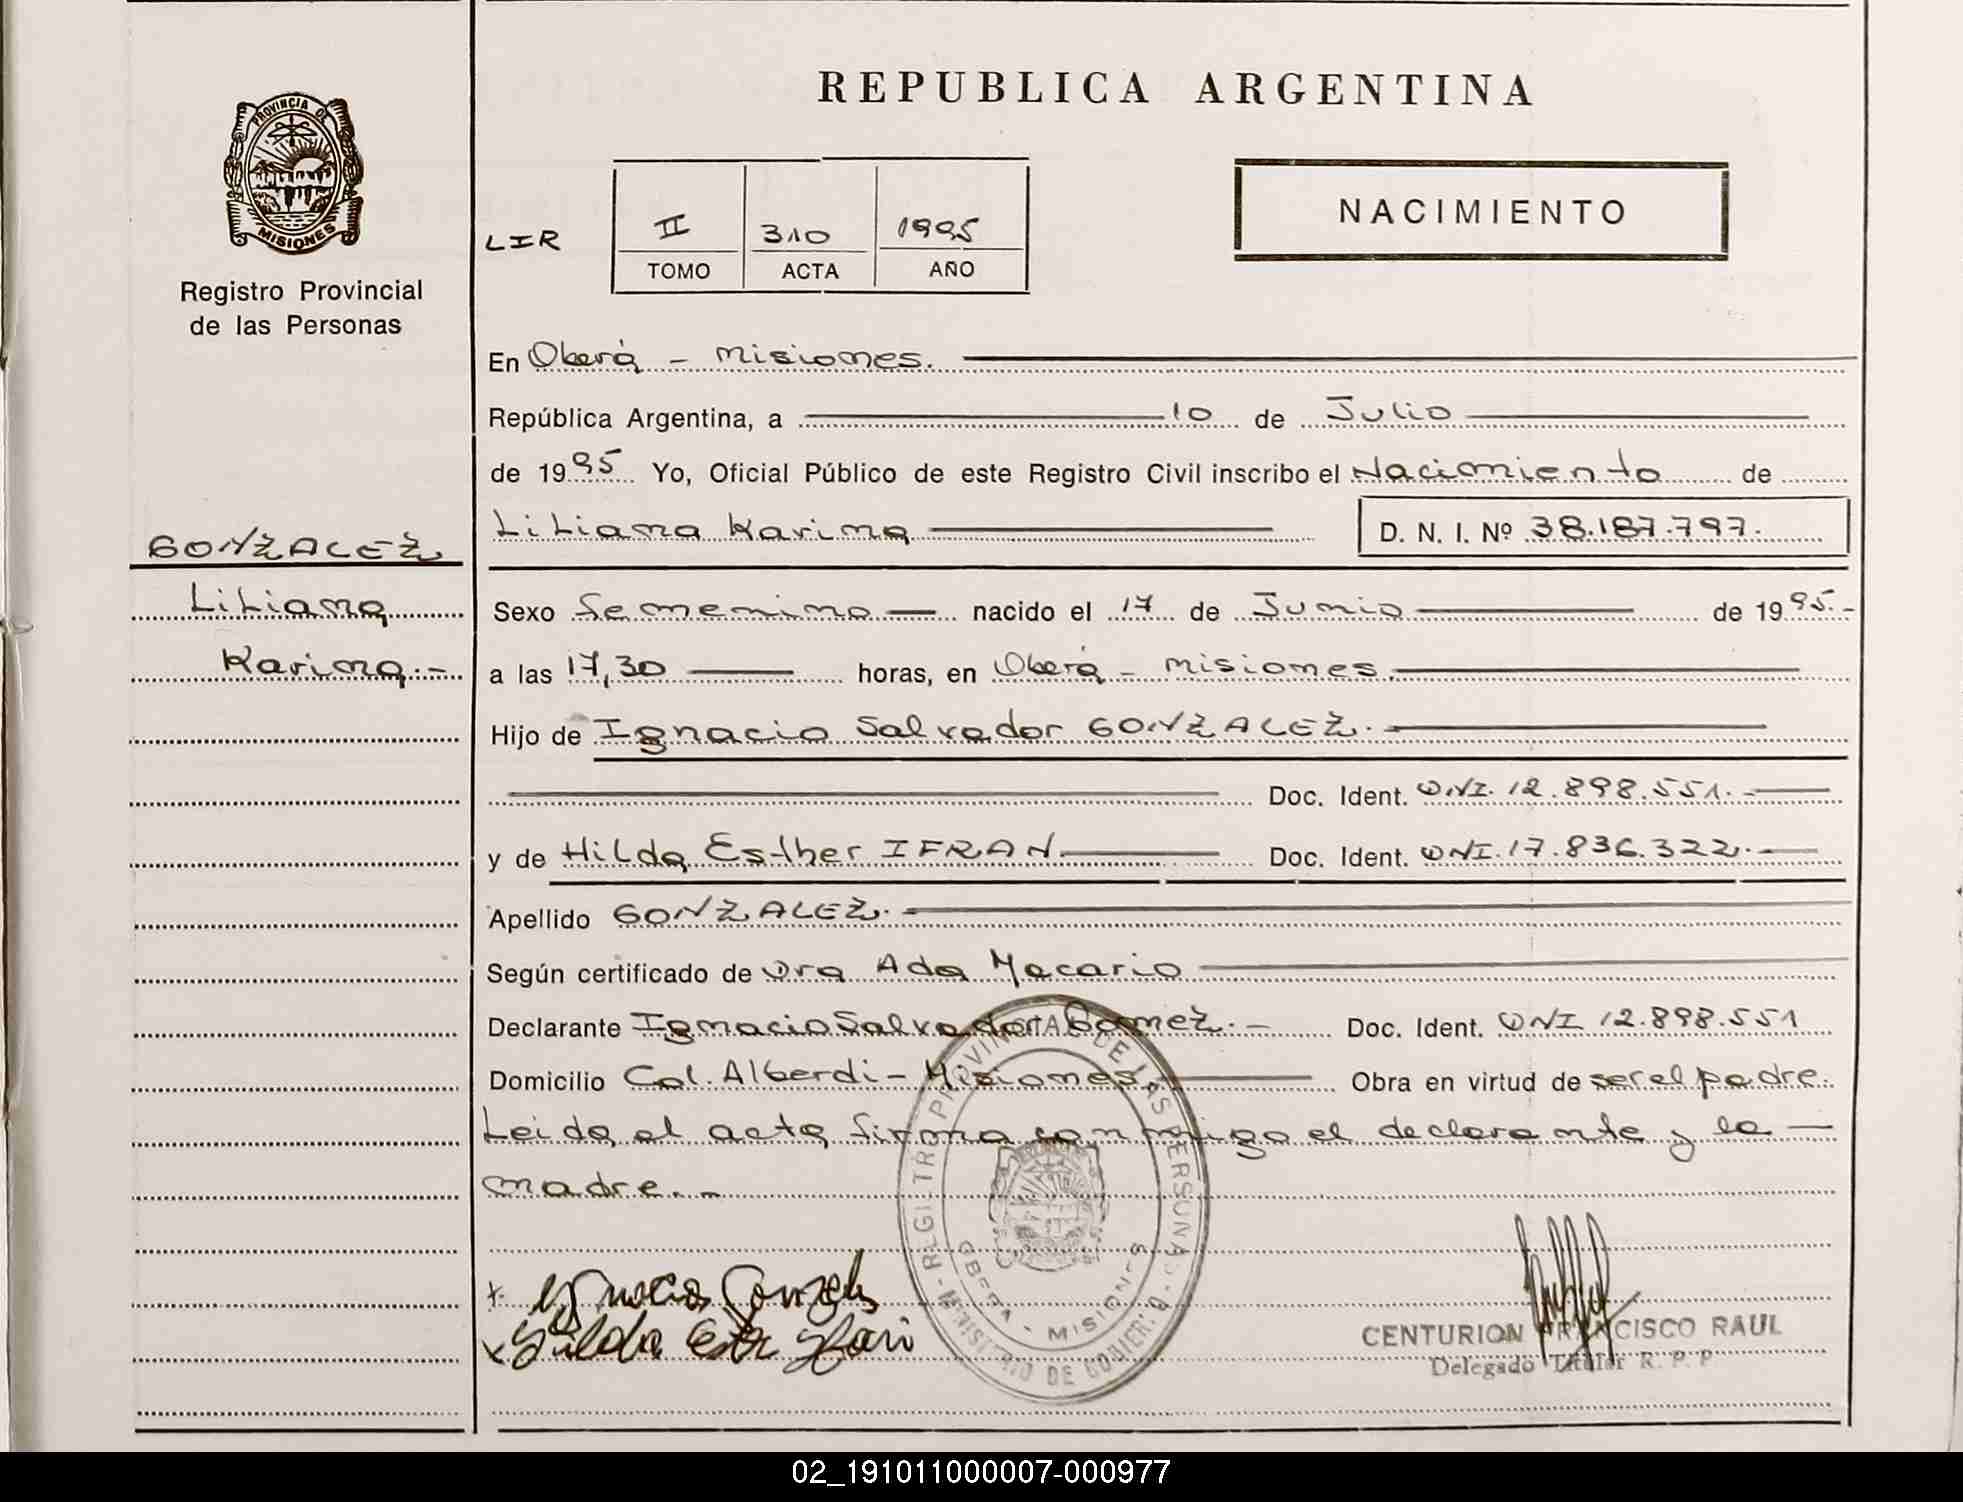 REPUBLICA ARGENTINA
PROVINCIA DE
MISIONES
Registro Provincial
de las Personas
LIR
II 310 1995
TOMO ACTA AÑO
NACIMIENTO
En Oberá - Misiones.
República Argentina, a 10 de Julio
de 1995 Yo, Oficial Público de este Registro Civil inscribo el Nacimiento de
Liliana Karina D. N. I. Nº 38.187.797.
GONZALEZ
Liliana
Karina.-
Sexo Femenino nacido el 17 de Junio de 1995.-
a las 17,30 horas, en Oberá - Misiones.
Hijo de Ignacio Salvador GONZALEZ.
Doc. Ident. DNI. 12.898.551.-
y de Hilda Esther IFRAN. Doc. Ident. DNI. 17.836.322.-
Apellido GONZALEZ.-
Según certificado de Dra Ada Macario
Declarante Ignacio Salvador Gomez.- Doc. Ident. DNI 12.898.551
Domicilio Col. Alberdi - Misiones. Obra en virtud de ser el padre.
Leida el acta firma conmigo el declarante y la -
madre.-
x Ignacio Gonzalez
x Hilda Ester
REGISTRO PROVINCIAL DE LAS PERSONAS
MINISTERIO DE GOBIERNO
OBERA - MISIONES
CENTURION FRANCISCO RAUL
Delegado Titular R. P. P
02_191011000007-000977